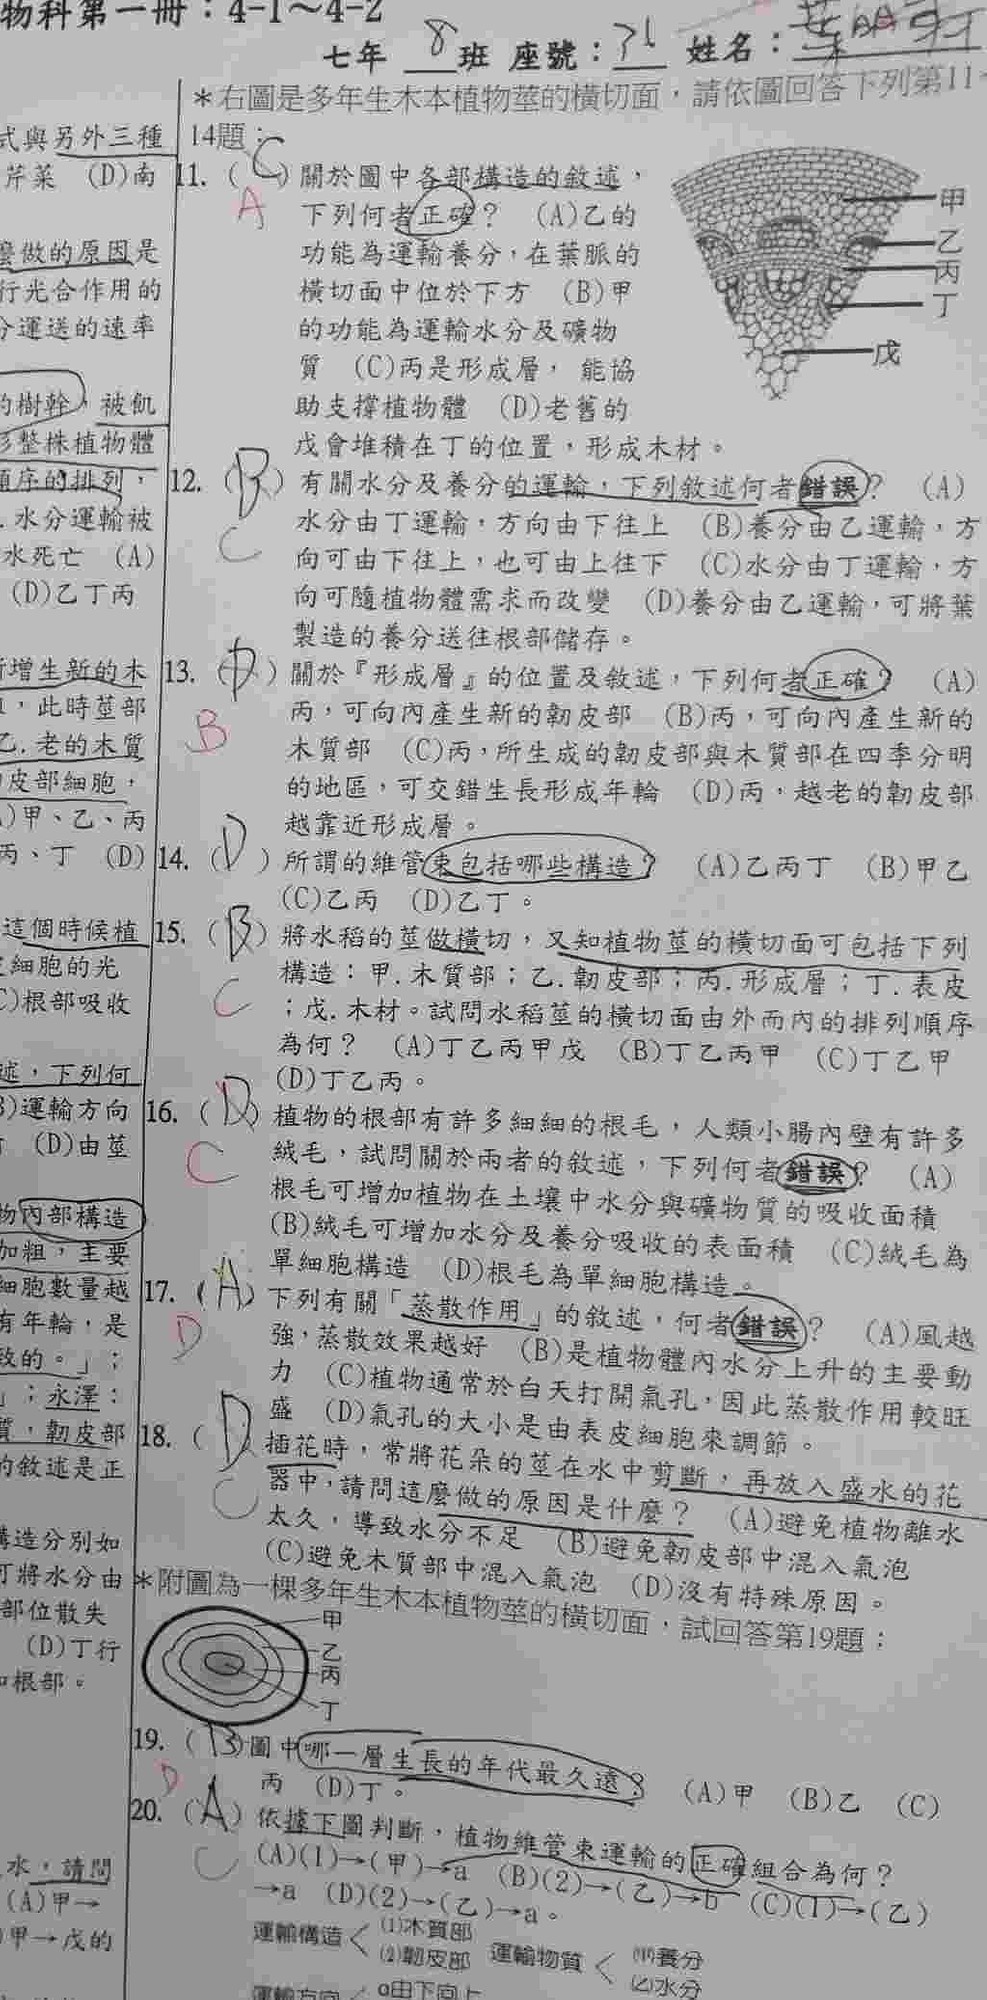 物科第一冊：4-1～4-2
七年 8 班 座號：31 姓名：
＊右圖是多年生木本植物莖的橫切面，請依圖回答下列第11
14題：
11. (C) 關於圖中各部構造的敘述，
A
下列何者正確？ (A)乙的
功能為運輸養分，在葉脈的
橫切面中位於下方 (B)甲
的功能為運輸水分及礦物
質 (C)丙是形成層， 能協
助支撐植物體 (D)老舊的
戊會堆積在丁的位置，形成木材。
甲
乙
丙
丁
戊
12. (B) 有關水分及養分的運輸，下列敘述何者錯誤？ (A)
水分由丁運輸，方向由下往上 (B)養分由乙運輸，方
C
向可由下往上，也可由上往下 (C)水分由丁運輸，方
向可隨植物體需求而改變 (D)養分由乙運輸，可將葉
製造的養分送往根部儲存。
13. (D) 關於『形成層』的位置及敘述，下列何者正確？ (A)
丙，可向內產生新的韌皮部 (B)丙，可向內產生新的
B
木質部 (C)丙，所生成的韌皮部與木質部在四季分明
的地區，可交錯生長形成年輪 (D)丙，越老的韌皮部
越靠近形成層。
14. (D) 所謂的維管束包括哪些構造？ (A)乙丙丁 (B)甲乙
(C)乙丙 (D)乙丁。
15. (B) 將水稻的莖做橫切，又知植物莖的橫切面可包括下列
構造：甲.木質部；乙.韌皮部；丙.形成層；丁.表皮
C
；戊.木材。試問水稻莖的橫切面由外而內的排列順序
為何？ (A)丁乙丙甲戊 (B)丁乙丙甲 (C)丁乙甲
(D)丁乙丙。
16. (D) 植物的根部有許多細細的根毛，人類小腸內壁有許多
絨毛，試問關於兩者的敘述，下列何者錯誤？ (A)
C
根毛可增加植物在土壤中水分與礦物質的吸收面積
(B)絨毛可增加水分及養分吸收的表面積 (C)絨毛為
單細胞構造 (D)根毛為單細胞構造。
17. (A) 下列有關「蒸散作用」的敘述，何者錯誤？ (A)風越
強，蒸散效果越好 (B)是植物體內水分上升的主要動
D
力 (C)植物通常於白天打開氣孔，因此蒸散作用較旺
盛 (D)氣孔的大小是由表皮細胞來調節。
18. (D 插花時，常將花朵的莖在水中剪斷，再放入盛水的花
器中，請問這麼做的原因是什麼？ (A)避免植物離水
C
太久，導致水分不足 (B)避免韌皮部中混入氣泡
(C)避免木質部中混入氣泡 (D)沒有特殊原因。
＊附圖為一棵多年生木本植物莖的橫切面，試回答第19題：
甲
乙
丙
丁
19. (B) 圖中哪一層生長的年代最久遠？ (A)甲 (B)乙 (C)
丙 (D)丁。
D
20. (A) 依據下圖判斷，植物維管束運輸的正確組合為何？
(A)(1)→(甲)→a (B)(2)→(乙)→b (C)(1)→(乙)
C
→a (D)(2)→(乙)→a。
運輸構造 (1)木質部
(2)韌皮部 運輸物質 (甲)養分
(乙)水分
運輸方向 a由下向上
式與另外三種
芹菜 (D)南
麼做的原因是
行光合作用的
分運送的速率
的樹幹，被飢
整株植物體
順序的排列，
.水分運輸被
水死亡 (A)
(D)乙丁丙
新增生新的木
，此時莖部
乙.老的木質
皮部細胞，
)甲、乙、丙
丙、丁 (D)
這個時候植
細胞的光
C)根部吸收
述，下列何
B)運輸方向
(D)由莖
物內部構造
加粗，主要
細胞數量越
有年輪，是
致的。」；
」；永澤：
質，韌皮部
的敘述是正
構造分別如
可將水分由
部位散失
(D)丁行
根部。
水，請問
(A)甲→
甲→戊的